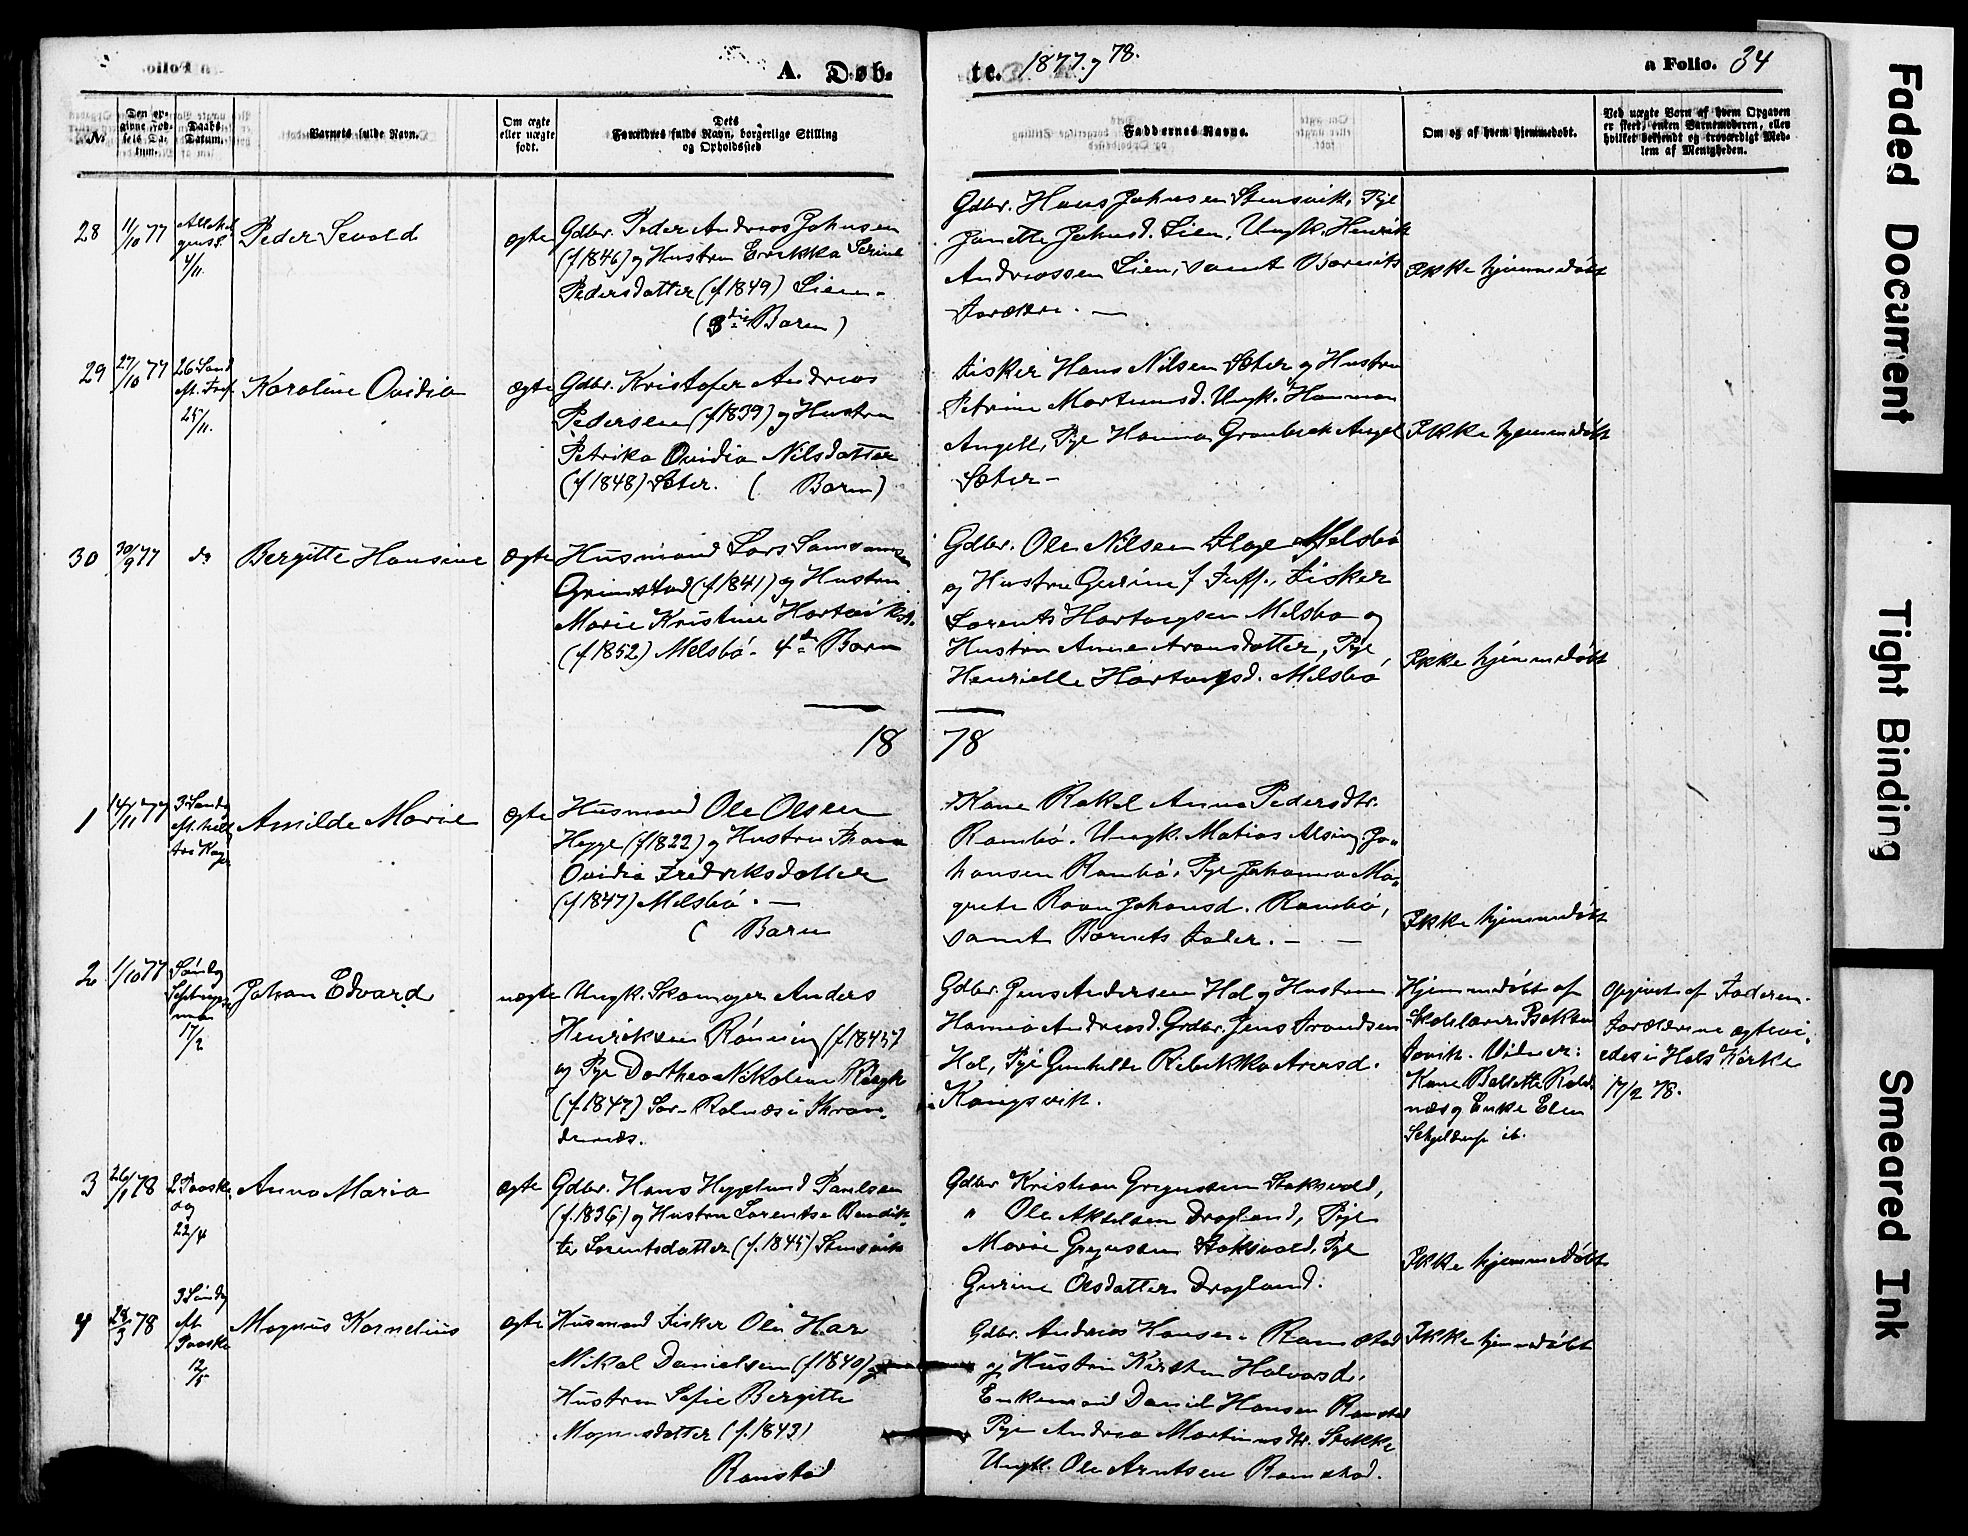 A. Døb-
te. 1877 og 78.
a Folio. 34
No.
Den opgivne Fødsels Datum.
Daabs Datum.
Barnets fulde Navn.
Om ægte eller uægte født.
Dets Forældres fulde Navn, borgerlige Stilling og Opholdssted
Faddernes Navne.
Om og af hvem hjemmedøbt.
Ved uægte Børn af hvem Opgaven er skeet, enten Barnemoderen, eller hvilket bekjendt og troværdigt Medlem af Menigheden.
28
11/10 77
4/11.
Peder Sevald
ægte
Gdbr. Peder Andreas Johnsen
(f 1846) og Hustru Erikka Serine
Pedersdatter (f 1849) Lien -
(3die Barn)
Gdbr. Hans Johnsen Stensvik, Pige
Janette Johnsd. Lien, Ungk. Henrik
Andreassen Lien, samt Barnets
Forældre. —
Ikke hjemmedøbt
29
27/10 77
26 Sønd
25/11.
Karoline Ovidia
ægte
Gdbr. Kristofer Andreas
Pedersen (f 1839) og Hustru
Petrika Ovidia Nilsdatter
(f 1848) Sæter. ( Barn)
Fisker Hans Nilsen Sæter og Hustru
Petrine Mortensd. Ungk. Herman
Angell, Pige Hanna Angel
Sæter -
Ikke hjemmedøbt
30
30/9 77
do
Bergitte Hansine
ægte
Husmand Lars Samsonsen
Grimstad (f 1841) og Hustru
Marie Kristine Hartviksd.
(f 1852) Melsbø. 4de Barn
Gdbr. Ole Nilsen Melsbø
og Hustru Gurine f Fuff., Fisker
Lorents Hartvigsen Melsbø og
Hustru Anne Aronsdatter, Pige
Henrielle Hartvigsd. Melsbø
Ikke hjemmedøbt
18 78
1
14/11 77
3 Søndag
Amilde Marie
ægte
Husmand Ole Olsen
Hegge (f 1822) og Hustru
Ovidia Fredriksdatter
(f 1847) Melsbø. —
( Barn
Kone Rakel Anna Pedersdtr.
Rambø. Ungk. Matias Alsing Jo-
hansen Rambø, Pige Johanna Ma-
grete Johansd. Rambø,
samt Barnets Fader. — —
Ikke hjemmedøbt
2
1/10 77
Søndag
17/2
Johan Edvard
uægte
Ungk. Skomager Anders
Henriksen Rønning (f 1845)
og Pige Dorthea Nikoline
(f. 1847) Rolnæs i Tran-
denæs.
Gdbr. Jens Andersen Hol og Hustru
Hanna Andreasd. Grdbr. Jens Trondsen
Hol, Pige Gunhilde Rebekka Arensd.
Kongsvik.
Hjemmedøbt af
Skolelærer Bakken
Vidner:
Kone Rol-
næs og Enke Elen
Schjelderup ib.
Opgivet af Faderen.
Forældrene ægtevi-
edes i Hols Kirke
17/2 78.
3
26/1 78
2 Paaske
dag
22/4
Anna Maria
ægte
Gdbr. Hans Hegelund Paulsen
(f. 1836) og Hustru Lorentse Benedik-
te Lorentsdatter (f. 1845) Stensvik
Gdbr Kristian Gregussen Stoksvold,
" Ole Akselsen Dragland, Pige
Marie Gregussen Stoksvold, Pige
Gurine Olsdatter Dragland.
Ikke hjemmedøbt
4
28/3 78
3 Søndag
eft.
Paaske
12/5
Magnus Kornelius
ægte
Husmand Fisker Ole Har
Mikal Danielsen (f 1840) og
Hustru Sofie Bergitte
Magnusdatter (f. 1843)
Ramstad
Gdbr. Andreas Hansen Ramstad
og Hustru Kirsten Halvorsd.
Enkemand Daniel Hansen Ramstad
Pige Andrea Martinusdtr. Stokke
Ungk. Ole Arntsen Ramstad.
Ikke hjemmedøbt
Faded Document
Tight Binding
Smeared Ink